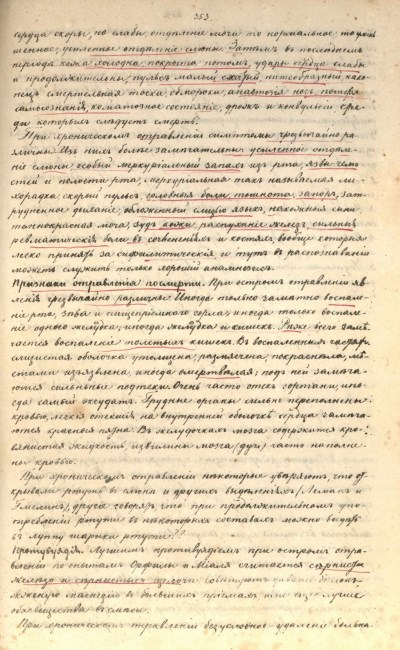 353.
сердца скоры, но слабы, отделенiе мочи то нормальное, то умень
шенное; усиленное отделенiе слюны. Затѣмъ въ последнемъ
перiоде кожа холодна покрыта потомъ, удары сердца слабы
и продолжительны, пульсъ малый скорый, нитеобразный нако
нецъ смертельная тоска обмороки, апатiя потеря
самосознанiя, коматозное состоянiе, дрожь и конвульсiи сре
ди которыхъ следуетъ смерть.
При хроническомъ отравленiи симптомы чрезвычайно ра
зличны Изъ нихъ болѣе замѣчательны усиленное отделе
нiе слюны, особый меркурiальный запахъ изъ рта, язвы
стей и полости рта, меркурiальная такъ называемая ли
хорадка скорый пульсъ, головныя боли, тошнота, запоръ, зат
рудненное дыханiе, обложенный слизью языкъ,
темнокрасная моча, зудъ кожи, распуханiе железъ, сильныя
ревматическiя боли въ сочлененiяхъ и костяхъ, вообще которыя
легко принять за сифилитическiя и тутъ въ распознаванiи
можетъ служить только хорошiй анамнезисъ.
Признаки отравленiя по смерти. При остромъ отравленiи яв
ленiя чрезвычайно различны: Иногда только заметно воспале
нiе рта, зѣва и пищепрiемнаго горла иногда только воспале
нiе одного желудка; иногда желудка и кишекъ. Реже всего заме
чается воспаленiе толстыхъ кишекъ. Въ воспаленныхъ частяхъ
слизистая оболочка утолщена, размягчена покраснела, мѣ
стами изъязвлена, иногда омертвѣлая; подъ ней замеча
ются сильныя подтеки. Очень часто отекъ гортани, ино
гда самый эксудатъ. Грудные органы сильно переполнены
кровью, легкiя отекшiя, на внутренней оболочке сердца замеча
ются красныя пятна. Въ желудочкахъ мозга содержится кро
вянистая жидкость, извилины мозга часто наполне
ны кровью.
При хроническомъ отравленiи некоторые уверяютъ, что от
крывали ртуть въ слюне и другихъ выделенiяхъ (Леманъ и
Гмелинъ), другiе говорятъ, что при продолжительномъ упо
требленiи ртути въ некоторыхъ составахъ можно видеть
въ лупу шарики ртути??
Противуядiя. Лучшимъ противуядiемъ при остромъ отра
вленiи по опытамъ Орфилы и Мiаля считается сернистое
железо и
женную магнезiю въ большихъ прiемахъ или еще лучше
оба вещества вместе.
При хроническомъ отравленiи безусловное удаленiе больна